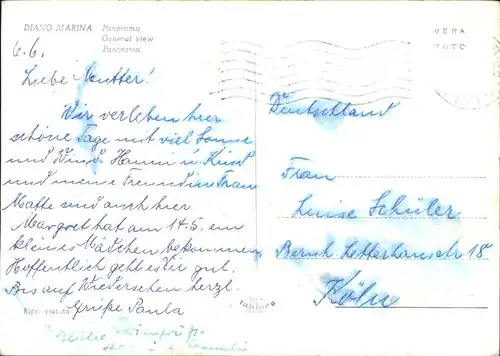 DIANO MARINA Panorama
General view
Panorama
VERA
FOTO
6.6.
Liebe Mutter!
Wir verleben hier
schöne Tage mit viel Sonne
und Wind. Hanni u. Kind
und meine Freundin Frau
Maffe sind auch hier
Margret hat am 14.5. ein
kleines Mädchen bekommen
Hoffentlich geht es Dir gut.
Bis auf Wiedersehen herzl.
Grüße Paula
Ripr. vietata
Deutschland
Frau
Luise Schüler
Bernh. Letterhausstr 18
Köln